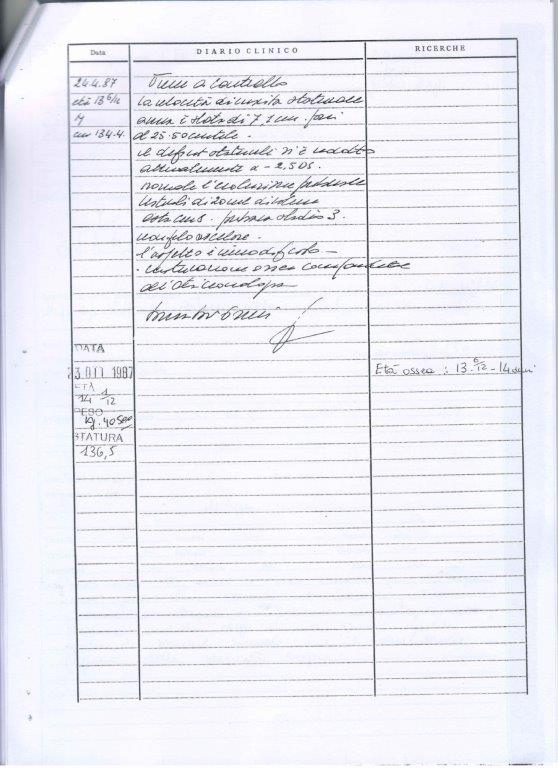 Data DIARIO CLINICO RICERCHE
24.4.87 Viene a controllo
età 13 6/12 La velocità di crescita staturale
annua è stata di 7,1 cm. pari
cm 134.4. al 25-50 centile.
il deficit staturale si è ridotto
attualmente a - 2,5 DS.
normale l'evoluzione puberale
testicoli di volume
asta cm 8. pubarca stadio 3.
l'aspetto è immodificato
maturazione ossea corrispondente
all'età cronologica
DATA
23 OTT. 1987 Età ossea : 13 6/12 - 14 anni
ETÀ
14 1/12
PESO
kg. 40
STATURA
136,5